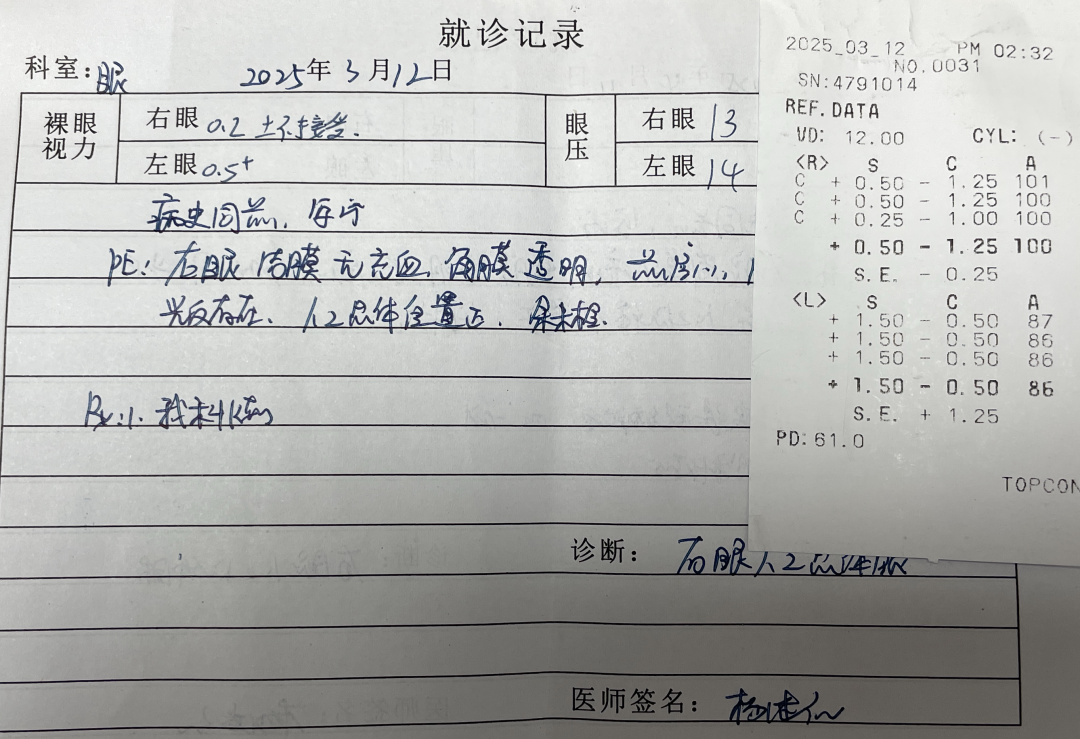 就诊记录
科室:眼 2025年3月12日
裸眼视力 右眼 0.2 矫不接受. 眼压 右眼 13
左眼 0.5+ 左眼 14
病史同前,
PE: 右眼 结膜无充血, 角膜透明, 前房
光反存在. 人工晶体位置正. 余未检.
Rx: 1.
诊断: 右眼人工晶体眼
医师签名:
2025_03_12 PM 02:32
NO.0031
SN:4791014
REF.DATA
VD: 12.00 CYL: (-)
<R> S C A
C + 0.50 - 1.25 101
C + 0.50 - 1.25 100
C + 0.25 - 1.00 100
+ 0.50 - 1.25 100
S.E. - 0.25
<L> S C A
+ 1.50 - 0.50 87
+ 1.50 - 0.50 86
+ 1.50 - 0.50 86
+ 1.50 - 0.50 86
S.E. + 1.25
PD:61.0
TOPCON